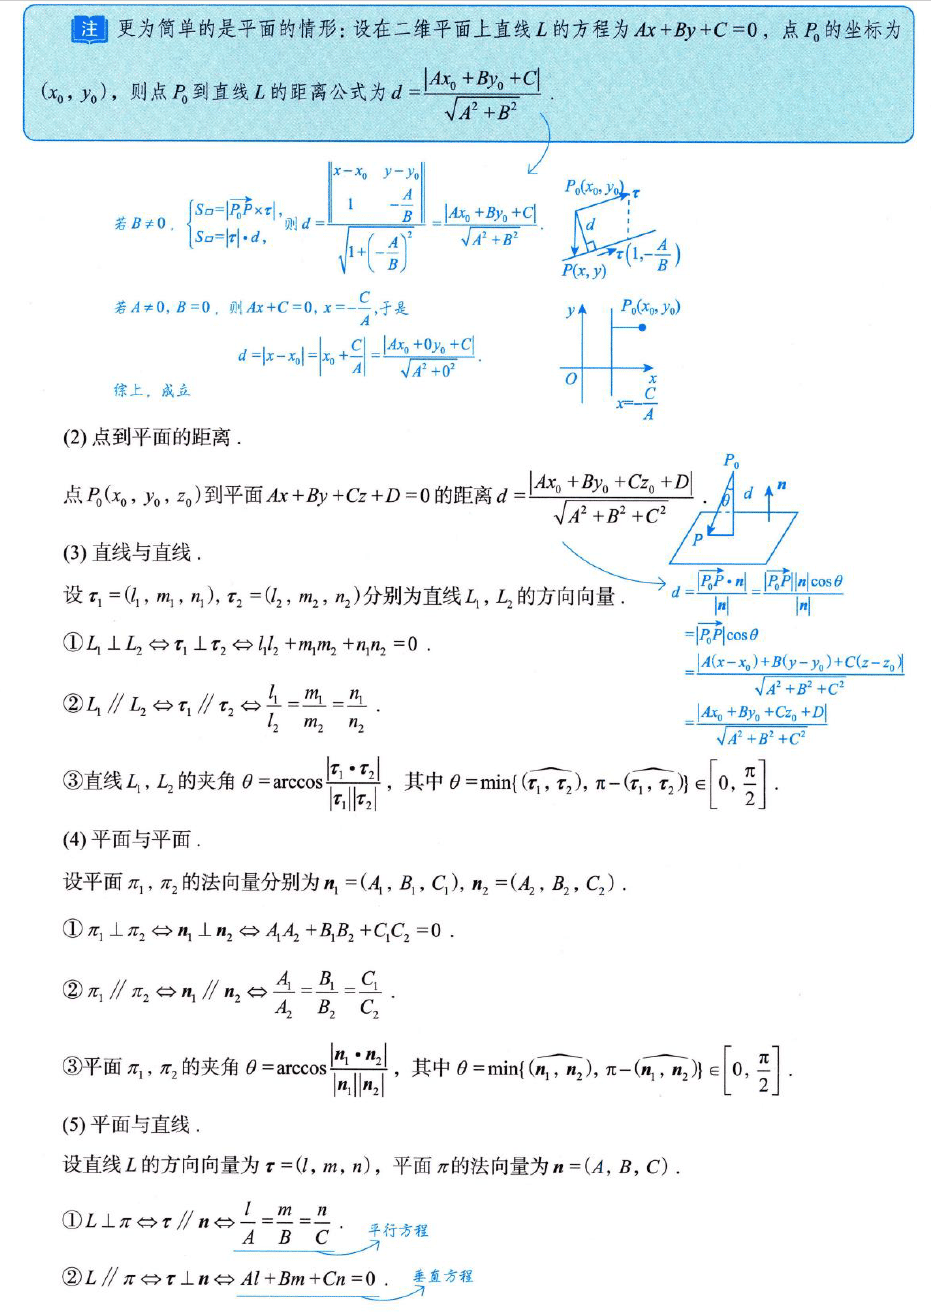 注 更为简单的是平面的情形：设在二维平面上直线 L 的方程为 Ax+By+C=0，点 P₀ 的坐标为
(x₀, y₀)，则点 P₀ 到直线 L 的距离公式为 d = |Ax₀+By₀+C| / √(A²+B²) .
若 B≠0，{S▱=|P₀P→×τ|, S▱=|τ|·d, 则 d = ||x-x₀ y-y₀; 1 -A/B|| / √(1+(-A/B)²) = |Ax₀+By₀+C| / √(A²+B²) .
P₀(x₀, y₀) τ
d
τ(1, -A/B)
P(x, y)
若 A≠0, B=0，则 Ax+C=0, x=-C/A, 于是
d=|x-x₀|=|x₀+C/A|=|Ax₀+0y₀+C| / √(A²+0²) .
综上，成立
y P₀(x₀, y₀)
O x
x=-C/A
(2) 点到平面的距离 .
点 P₀(x₀, y₀, z₀) 到平面 Ax+By+Cz+D=0 的距离 d = |Ax₀+By₀+Cz₀+D| / √(A²+B²+C²) .
P₀
θ d n
P
(3) 直线与直线 .
d = |P₀P→·n| / |n| = |P₀P→||n|cosθ / |n|
=|P₀P→|cosθ
= |A(x-x₀)+B(y-y₀)+C(z-z₀)| / √(A²+B²+C²)
= |Ax₀+By₀+Cz₀+D| / √(A²+B²+C²)
设 τ₁=(l₁, m₁, n₁), τ₂=(l₂, m₂, n₂) 分别为直线 L₁, L₂ 的方向向量 .
①L₁⊥L₂⇔τ₁⊥τ₂⇔l₁l₂+m₁m₂+n₁n₂=0 .
②L₁∥L₂⇔τ₁∥τ₂⇔l₁/l₂=m₁/m₂=n₁/n₂ .
③直线 L₁, L₂ 的夹角 θ=arccos |τ₁·τ₂| / |τ₁||τ₂|，其中 θ=min{(τ₁, τ₂), π-(τ₁, τ₂)}∈[0, π/2] .
(4) 平面与平面 .
设平面 π₁, π₂ 的法向量分别为 n₁=(A₁, B₁, C₁), n₂=(A₂, B₂, C₂) .
①π₁⊥π₂⇔n₁⊥n₂⇔A₁A₂+B₁B₂+C₁C₂=0 .
②π₁∥π₂⇔n₁∥n₂⇔A₁/A₂=B₁/B₂=C₁/C₂ .
③平面 π₁, π₂ 的夹角 θ=arccos |n₁·n₂| / |n₁||n₂|，其中 θ=min{(n₁, n₂), π-(n₁, n₂)}∈[0, π/2] .
(5) 平面与直线 .
设直线 L 的方向向量为 τ=(l, m, n)，平面 π 的法向量为 n=(A, B, C) .
①L⊥π⇔τ∥n⇔l/A=m/B=n/C . 平行方程
②L∥π⇔τ⊥n⇔Al+Bm+Cn=0 . 垂直方程